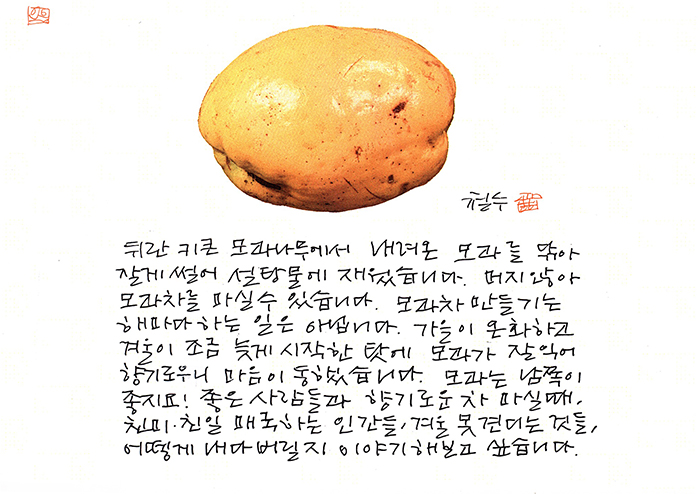 철수
뒤란 키큰 모과나무에서 내려온 모과를 닦아
잘게 썰어 설탕물에 재웠습니다. 머지않아
모과차를 마실 수 있습니다. 모과차 만들기는
해마다 하는 일은 아닙니다. 가을이 온화하고
겨울이 조금 늦게 시작한 탓에 모과가 잘익어
향기로우니 마음이 동했습니다. 모과는 남쪽이
좋지요! 좋은 사람들과 향기로운 차 마실때,
친미·친일 매국하는 인간들, 겨울 못견디는 것들,
어떻게 내다버릴지 이야기해보고 싶습니다.